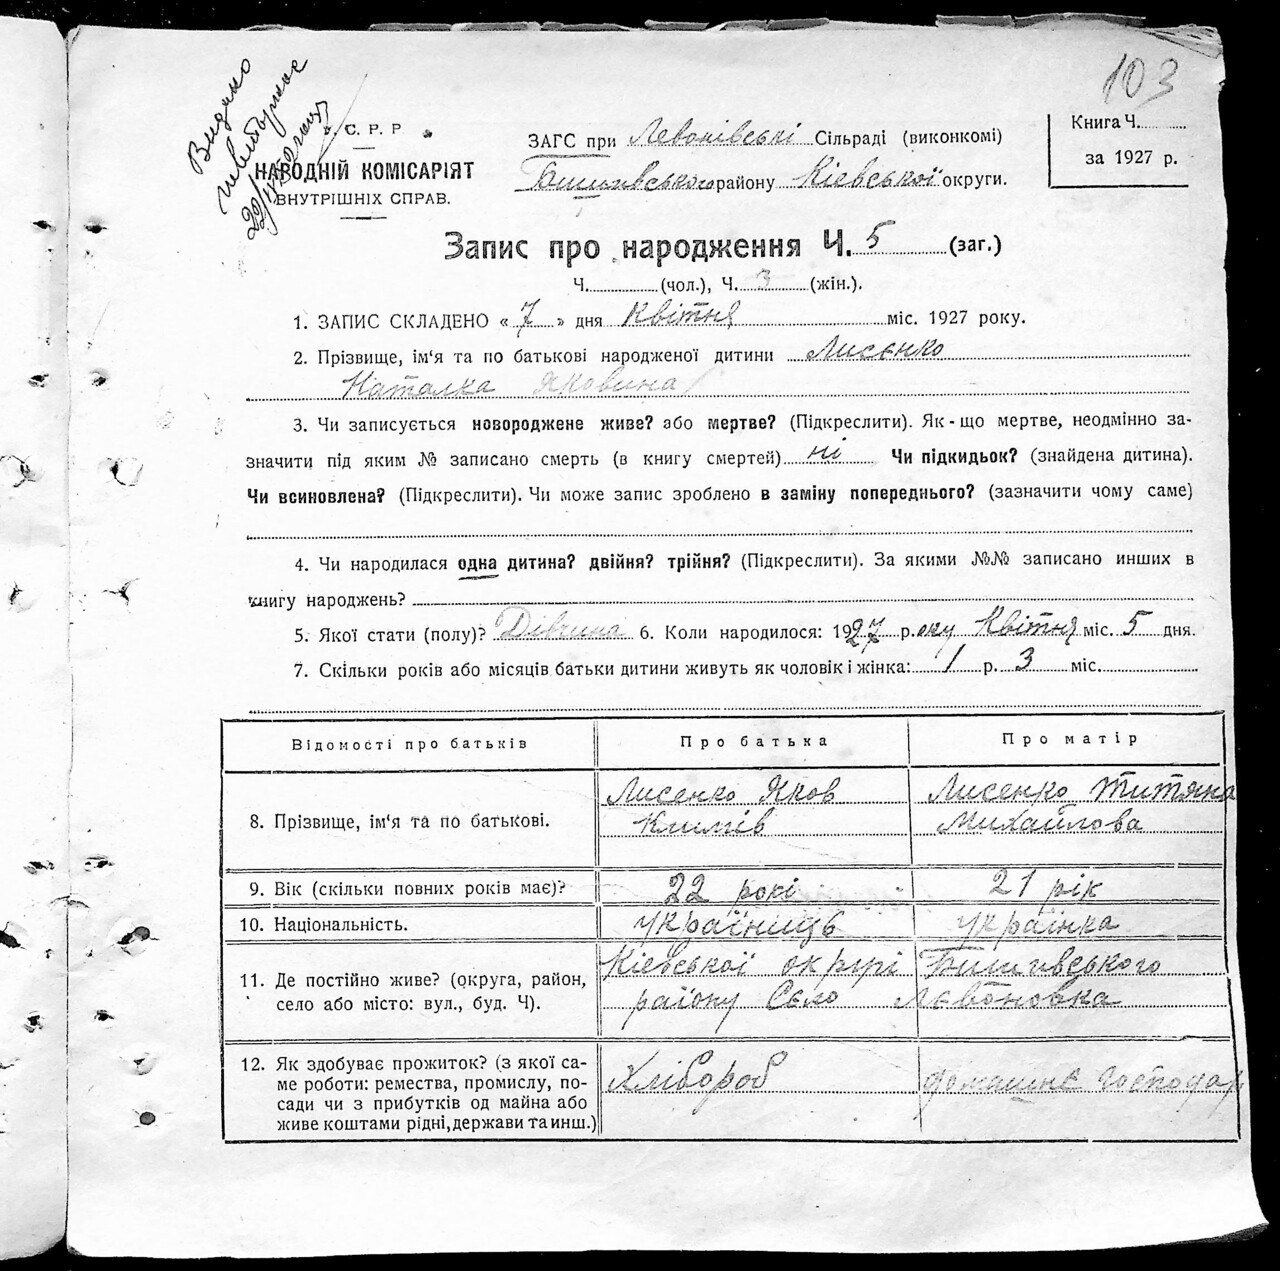 103
Видано
У. С. Р. Р
НАРОДНІЙ КОМІСАРІЯТ
ВНУТРІШНІХ СПРАВ.
ЗАГС при Левонівські Сільраді (виконкомі)
Бишівського району Кіевської округи.
Книга Ч.
за 1927 р.
Запис про народження Ч. 5 (заг.)
Ч. (чол.), Ч. 3 (жін.).
1. ЗАПИС СКЛАДЕНО « 7 » дня Квітня міс. 1927 року.
2. Прізвище, ім'я та по батькові народженої дитини Лисенко
Наталка Яковина
3. Чи записується новороджене живе? або мертве? (Підкреслити). Як-що мертве, неодмінно за-
значити під яким № записано смерть (в книгу смертей) ні Чи підкидьок? (знайдена дитина).
Чи всиновлена? (Підкреслити). Чи може запис зроблено в заміну попереднього? (зазначити чому саме)
4. Чи народилася одна дитина? двійня? трійня? (Підкреслити). За якими №№ записано инших в
книгу народжень?
5. Якої стати (полу)? Дівчина 6. Коли народилося: 1927 року Квітня міс. 5 дня.
7. Скільки років або місяців батьки дитини живуть як чоловік і жінка: 1 р. 3 міс.
Відомості про батьків Про батька Про матір
8. Прізвище, ім'я та по батькові. Лисенко Яков Лисенко Титяна
Климів Михайлова
9. Вік (скільки повних років має)? 22 рокі 21 рік
10. Національність. україниць українка
11. Де постійно живе? (округа, район, Кіевської окрузі Бишівського
село або місто: вул., буд. Ч). району Село Левоновка
12. Як здобуває прожиток? (з якої са- Хлібороб домашнє господар
ме роботи: ремества, промислу, по-
сади чи з прибутків од майна або
живе коштами рідні, держави та инш.)